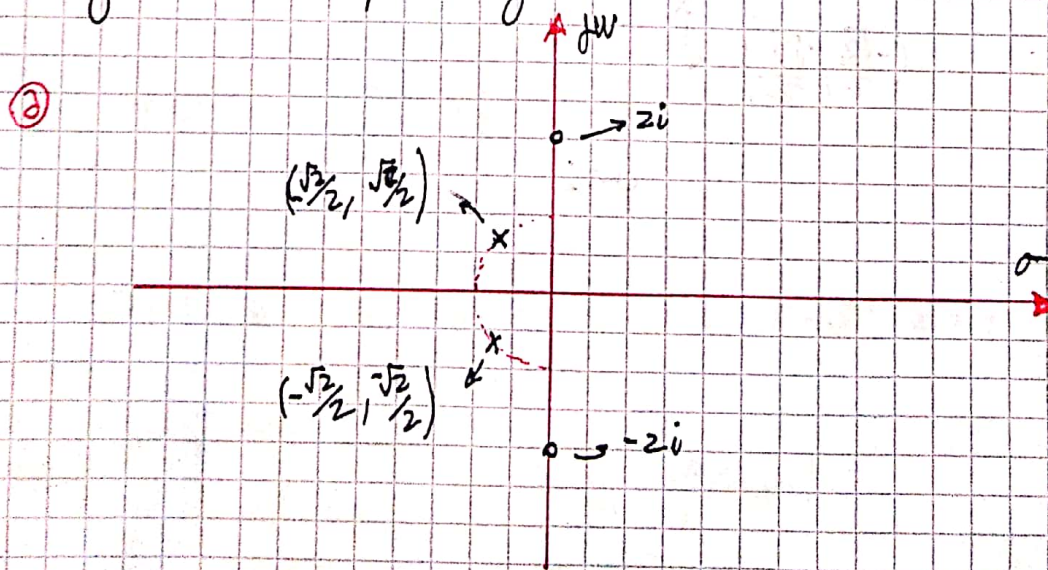 jw
②
2i
(-√2/2, √2/2)
σ
(-√2/2, -√2/2)
-2i